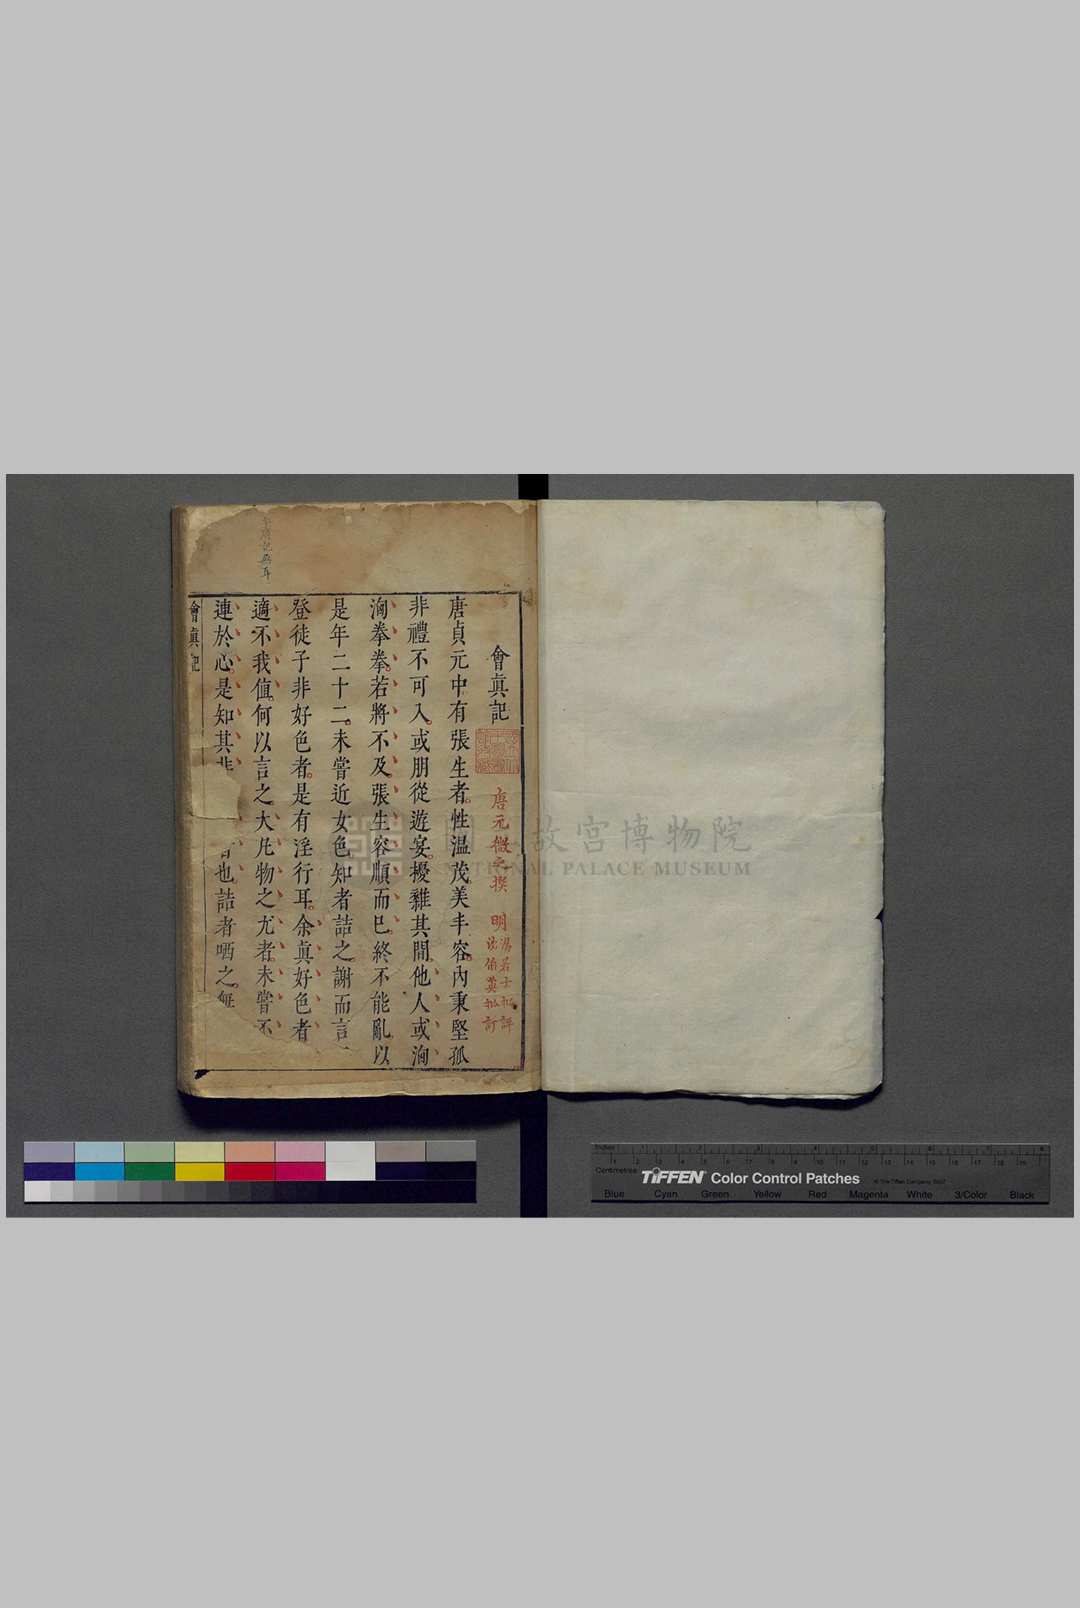 會眞記
唐元微之撰
明
湯若士批評
沈伯英批訂
唐貞元中有張生者性溫茂美丰容內秉堅孤
非禮不可入或朋從遊宴擾雜其間他人或洶
洶拳拳若將不及張生容順而已終不能亂以
是年二十二未嘗近女色知者詰之謝而言
登徒子非好色者是有淫行耳余眞好色者
適不我値何以言之大凡物之尤者未嘗不
連於心是知其非
也詰者哂之無
會眞記
故宮博物院
NATIONAL PALACE MUSEUM
Inches 1 2 3 4 5 6 7 8
Centimetres
TIFFEN Color Control Patches © The Tiffen Company, 2007
Blue Cyan Green Yellow Red Magenta White 3/Color Black